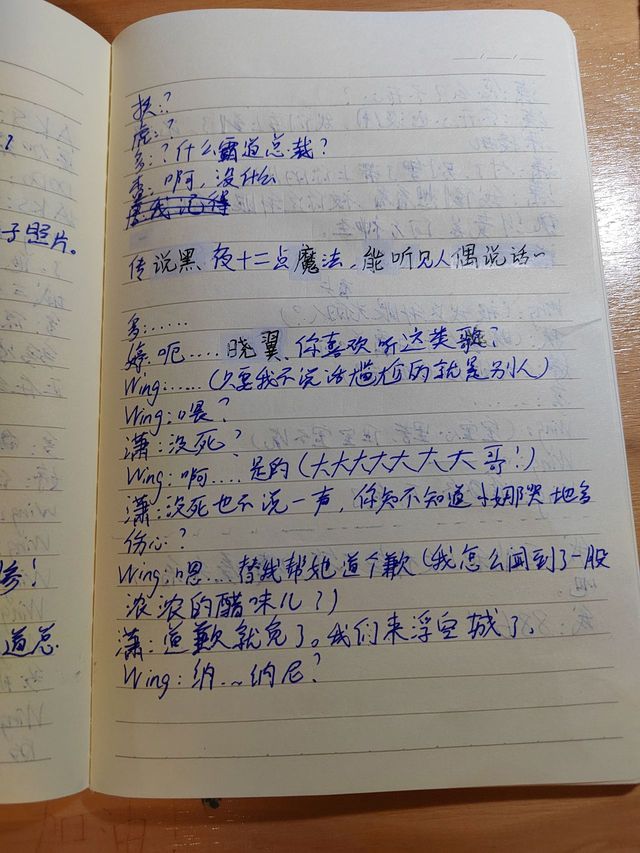 子照片。
参！
道总
扶：？
虎：？
多：？什么霸道总裁？
香：啊，没什么
我记得
传说黑夜十二点魔法，能听见人偶说话~
多：……
婷：呃……晓翼，你喜欢听这类歌？
Wing：……（只要我不说话尴尬的就是别人）
Wing：喂？
潇：没死？
Wing：啊……是的（大大大大大大大哥！）
潇：没死也不说一声，你知不知道小娜哭地多
伤心？
Wing：嗯……替我帮她道个歉（我怎么闻到了一股
浓浓的醋味儿？）
潇：道歉就免了。我们来浮空城了。
Wing：纳…纳尼？